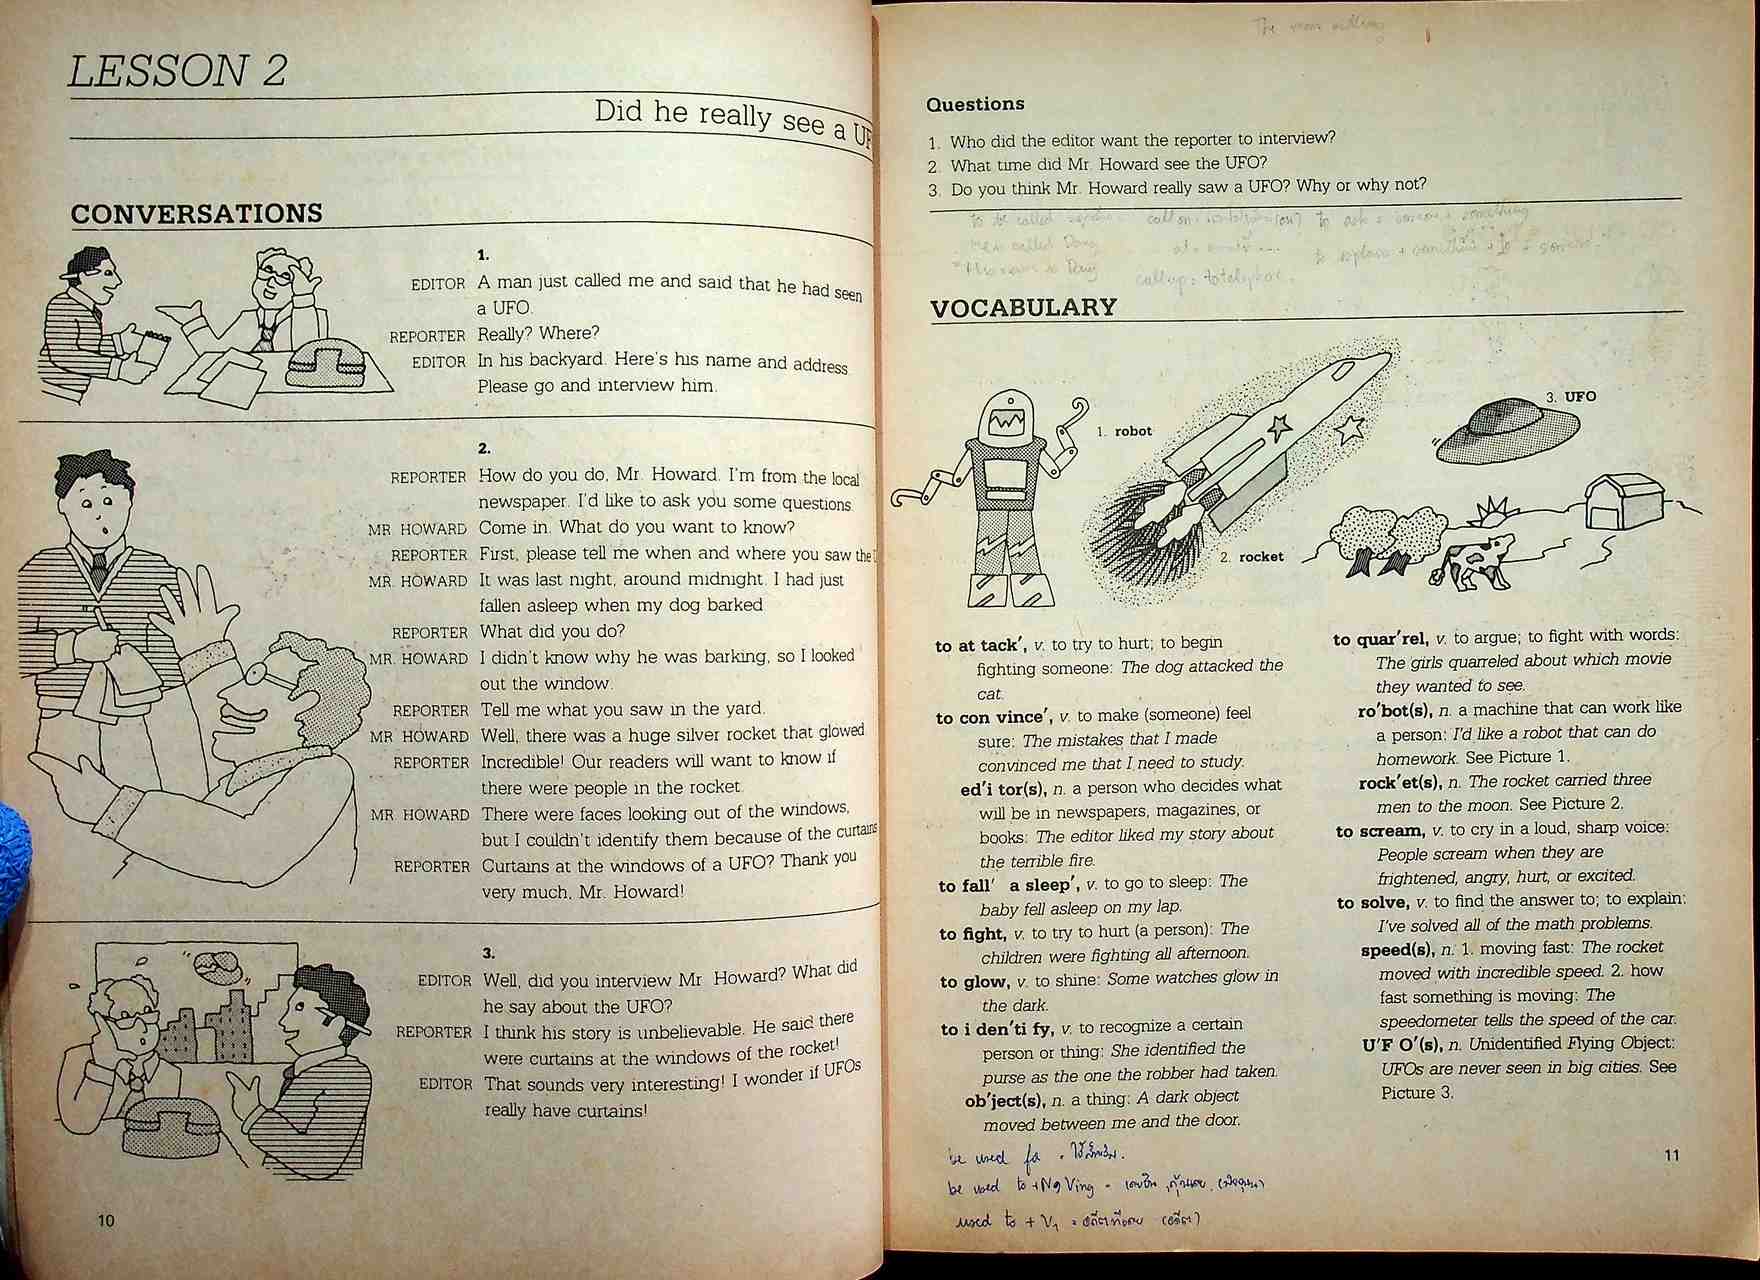 LESSON 2
Did he really see a UF
CONVERSATIONS
1.
EDITOR A man just called me and said that he had seen
a UFO.
REPORTER Really? Where?
EDITOR In his backyard. Here's his name and address.
Please go and interview him.
2.
REPORTER How do you do, Mr. Howard. I'm from the local
newspaper. I'd like to ask you some questions.
MR. HOWARD Come in. What do you want to know?
REPORTER First, please tell me when and where you saw the
MR. HOWARD It was last night, around midnight. I had just
fallen asleep when my dog barked
REPORTER What did you do?
MR. HOWARD I didn't know why he was barking, so I looked
out the window.
REPORTER Tell me what you saw in the yard.
MR HOWARD Well, there was a huge silver rocket that glowed
REPORTER Incredible! Our readers will want to know if
there were people in the rocket.
MR HOWARD There were faces looking out of the windows,
but I couldn't identify them because of the curtains
REPORTER Curtains at the windows of a UFO? Thank you
very much, Mr. Howard!
3.
EDITOR Well, did you interview Mr. Howard? What did
he say about the UFO?
REPORTER I think his story is unbelievable. He said there
were curtains at the windows of the rocket!
EDITOR That sounds very interesting! I wonder if UFOs
really have curtains!
10
The
Questions
1. Who did the editor want the reporter to interview?
2. What time did Mr. Howard see the UFO?
3. Do you think Mr. Howard really saw a UFO? Why or why not?
to be called call on to ask + someone + something
called Dang at to explain + something + to +
Dang call up:
VOCABULARY
1. robot
2. rocket
3. UFO
to at tack′, v. to try to hurt; to begin
fighting someone: The dog attacked the
cat.
to con vince′, v. to make (someone) feel
sure: The mistakes that I made
convinced me that I need to study.
ed′i tor(s), n. a person who decides what
will be in newspapers, magazines, or
books: The editor liked my story about
the terrible fire.
to fall′ a sleep′, v. to go to sleep: The
baby fell asleep on my lap.
to fight, v. to try to hurt (a person): The
children were fighting all afternoon.
to glow, v. to shine: Some watches glow in
the dark.
to i den′ti fy, v. to recognize a certain
person or thing: She identified the
purse as the one the robber had taken.
ob′ject(s), n. a thing: A dark object
moved between me and the door.
to quar′rel, v. to argue; to fight with words:
The girls quarreled about which movie
they wanted to see.
ro′bot(s), n. a machine that can work like
a person: I'd like a robot that can do
homework. See Picture 1.
rock′et(s), n. The rocket carried three
men to the moon. See Picture 2.
to scream, v. to cry in a loud, sharp voice:
People scream when they are
frightened, angry, hurt, or excited.
to solve, v. to find the answer to; to explain:
I've solved all of the math problems.
speed(s), n. 1. moving fast: The rocket
moved with incredible speed. 2. how
fast something is moving: The
speedometer tells the speed of the car.
U′F O′(s), n. Unidentified Flying Object:
UFOs are never seen in big cities. See
Picture 3.
be used for
be used to + Ving =
used to + V1 =
11